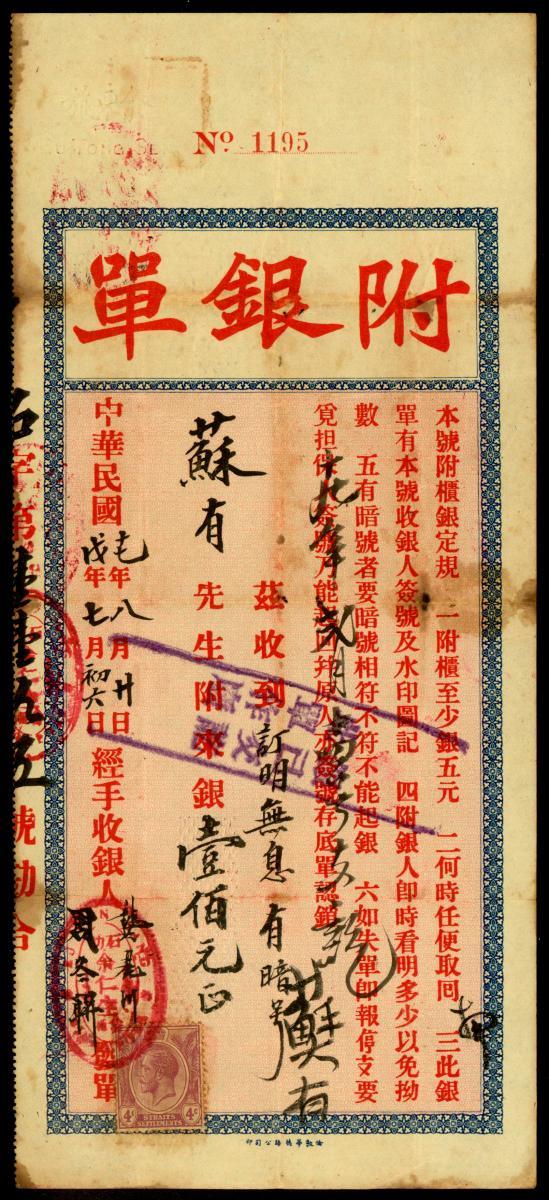 No. 1195
附銀單
本號附櫃銀定規 一附櫃至少銀五元 二何時任便取囘 三此銀
單有本號收銀人簽號及水印圖記 四附銀人即時看明多少以免拗
數 五有暗號者要暗號相符不符不能起銀 六如失單即報停支要
覓担保
簽號存底單認銷
茲收到 訂明無息 有暗號
蘇有
蘇有 先生附來銀 壹佰元正
中華民國 年八月廿日
戊年七月初六日 經手收銀人
周
單
號勘合
4c STRAITS SETTLEMENTS 4c